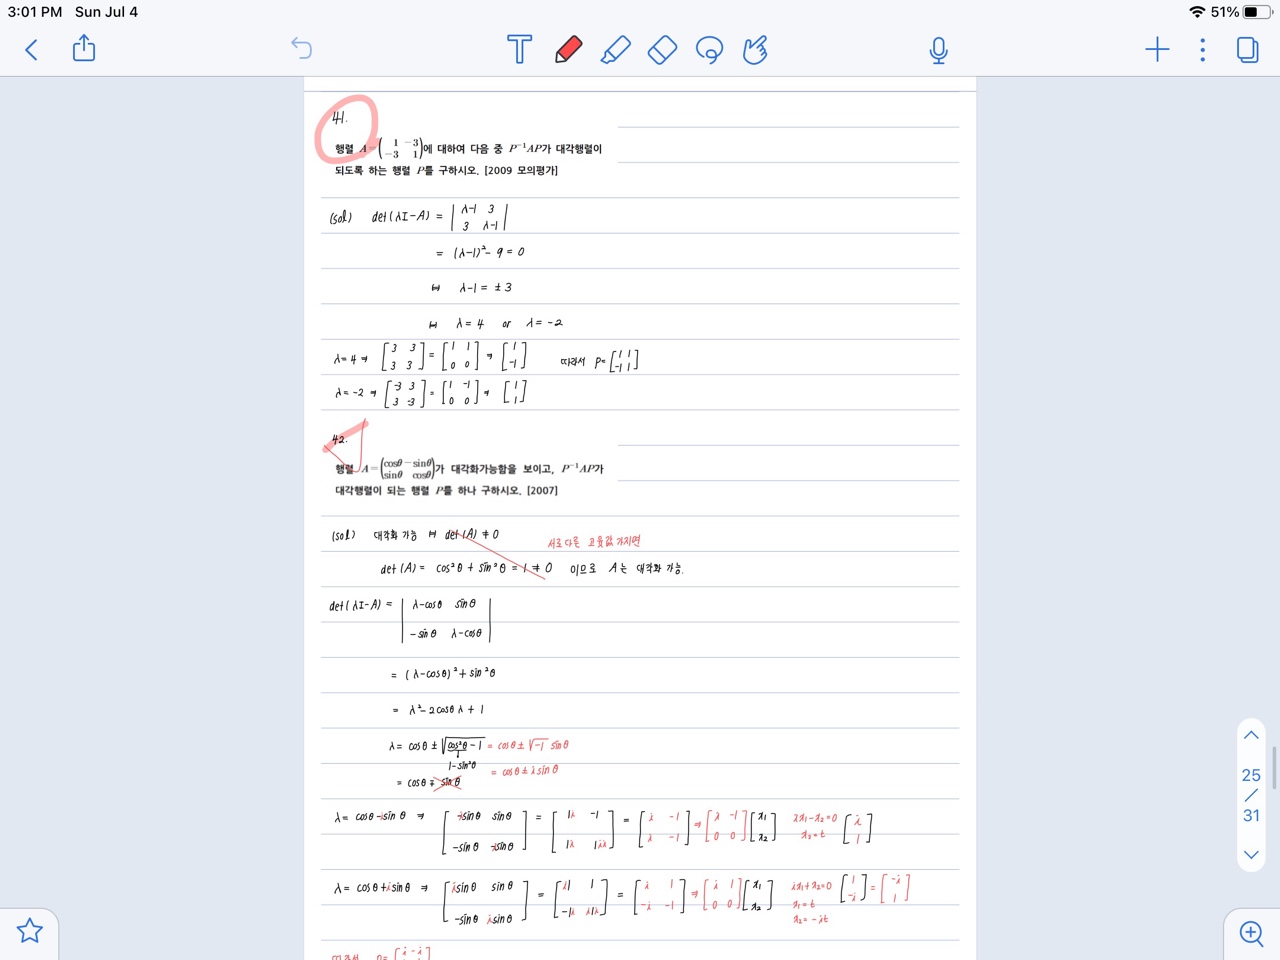 3:01 PM Sun Jul 4
51%
41.
행렬 A=( 1 -3 / -3 1 )에 대하여 다음 중 P⁻¹AP가 대각행렬이
되도록 하는 행렬 P를 구하시오. [2009 모의평가]
(sol) det(λI-A) = | λ-1 3 / 3 λ-1 |
= (λ-1)² - 9 = 0
⇔ λ-1 = ±3
⇔ λ=4 or λ=-2
λ=4 ⇒ [3 3 / 3 3] = [1 1 / 0 0] ⇒ [1 / -1] 따라서 P=[1 1 / -1 1]
λ=-2 ⇒ [-3 3 / 3 -3] = [1 -1 / 0 0] ⇒ [1 / 1]
42.
행렬 A=(cosθ -sinθ / sinθ cosθ)가 대각화가능함을 보이고, P⁻¹AP가
대각행렬이 되는 행렬 P를 하나 구하시오. [2007]
(sol) 대각화 가능 ⇔ det(A) ≠ 0
서로 다른 고윳값 가지면
det(A) = cos²θ + sin²θ = 1 ≠ 0 이므로 A는 대각화 가능.
det(λI-A) = | λ-cosθ sinθ / -sinθ λ-cosθ |
= (λ-cosθ)² + sin²θ
= λ² - 2cosθ λ + 1
λ = cosθ ± √(cos²θ - 1) = cosθ ± √-1 sinθ
1-sin²θ
= cosθ ± i sinθ
= cosθ ∓ sinθ
λ = cosθ - i sinθ ⇒ [-i sinθ sinθ / -sinθ -i sinθ] = = [i -1 / i -1] ⇒ [i -1 / 0 0] [x₁ / x₂] ix₁-x₂=0 x₂=t [i / 1]
λ = cosθ + i sinθ ⇒ [i sinθ sinθ / -sinθ i sinθ] = = [i 1 / -i -1] ⇒ [i 1 / 0 0] [x₁ / x₂] ix₁+x₂=0 x₁=t x₂=-it [1 / -i] = [-i / 1]
따라서 P= [i -i
25
31